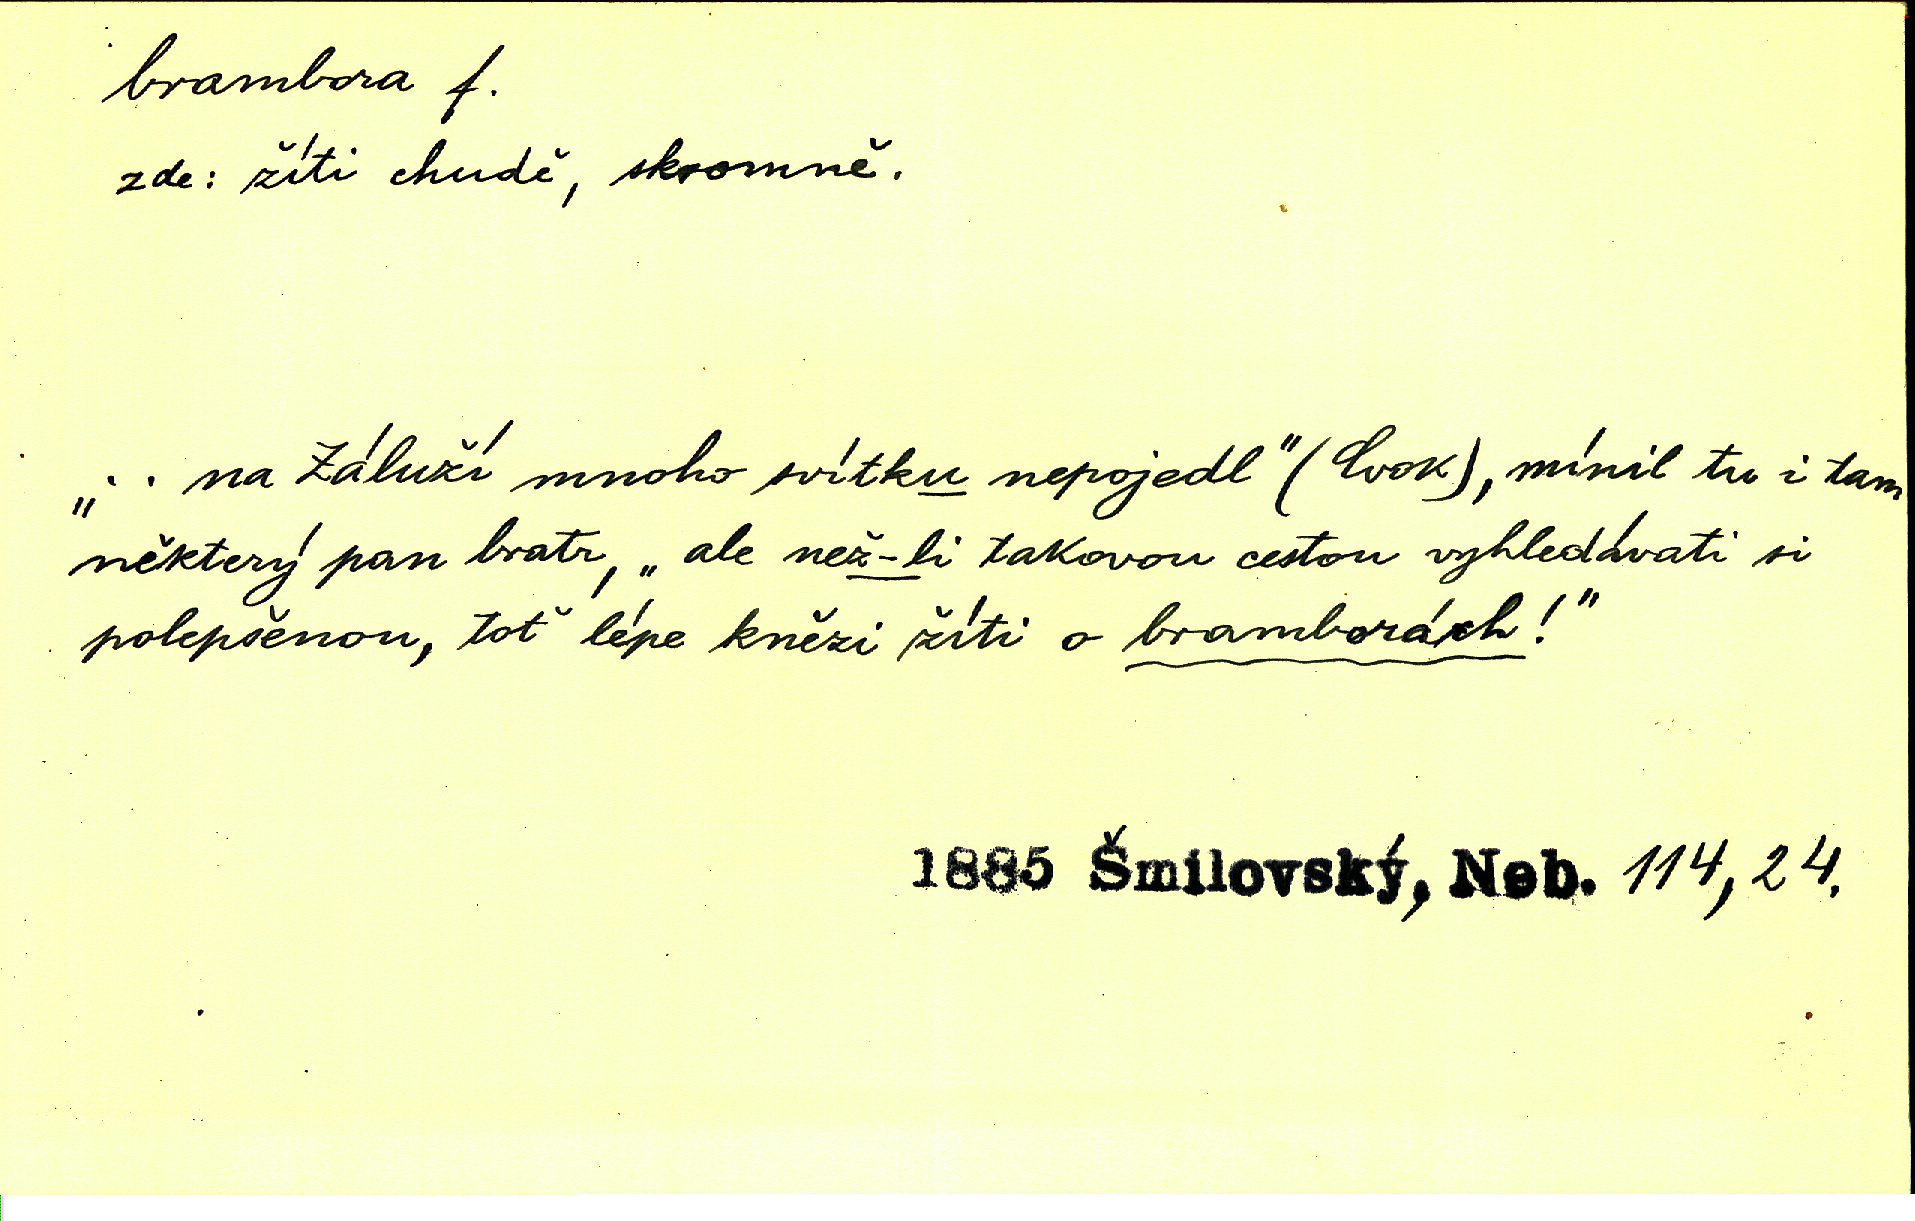 brambora f.
zde: žíti chudě, skromně.
„.. na Záluží mnoho svítku nepojedl" (Cvok), mínil tu i tam
některý pan bratr, „ale než-li takovou cestou vyhledávati si
polepšenou, toť lépe knězi žíti o bramborách!"
1885 Šmilovský, Neb. 114,24.